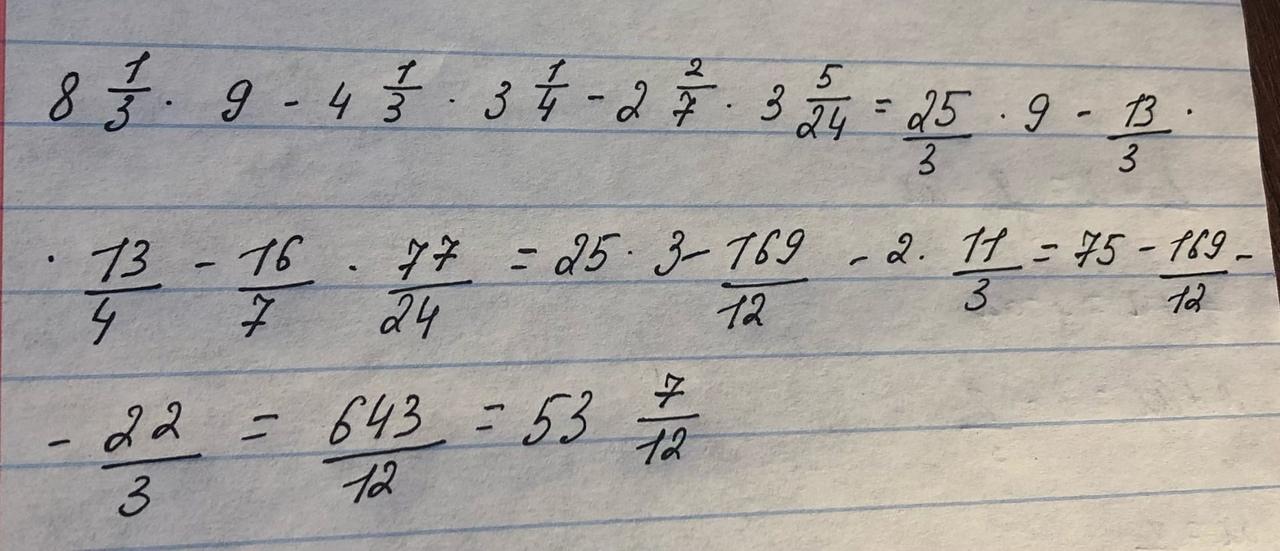 8 1/3 · 9 - 4 1/3 · 3 1/4 - 2 2/7 · 3 5/24 = 25/3 · 9 - 13/3 ·
· 13/4 - 16/7 · 77/24 = 25 · 3 - 169/12 - 2 · 11/3 = 75 - 169/12 -
- 22/3 = 643/12 = 53 7/12